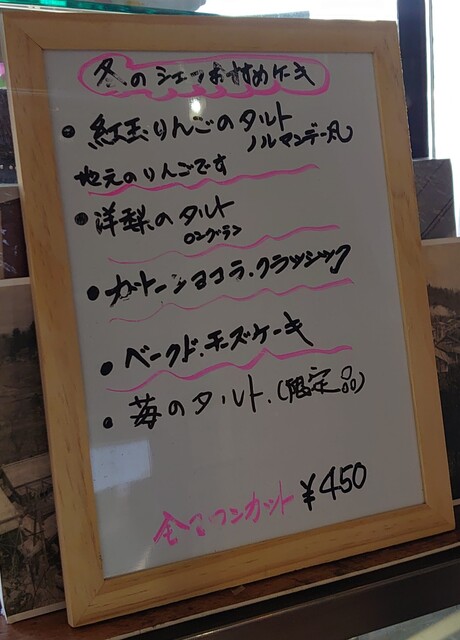 冬のシェフおすすめケーキ
• 紅玉りんごのタルト
ノルマンデー丸
地元のりんごです
• 洋梨のタルト
ロングラン
• ガトーショコラ.クラッシック
• ベークド.チーズケーキ
• 苺のタルト.(限定品)
全てワンカット ¥450